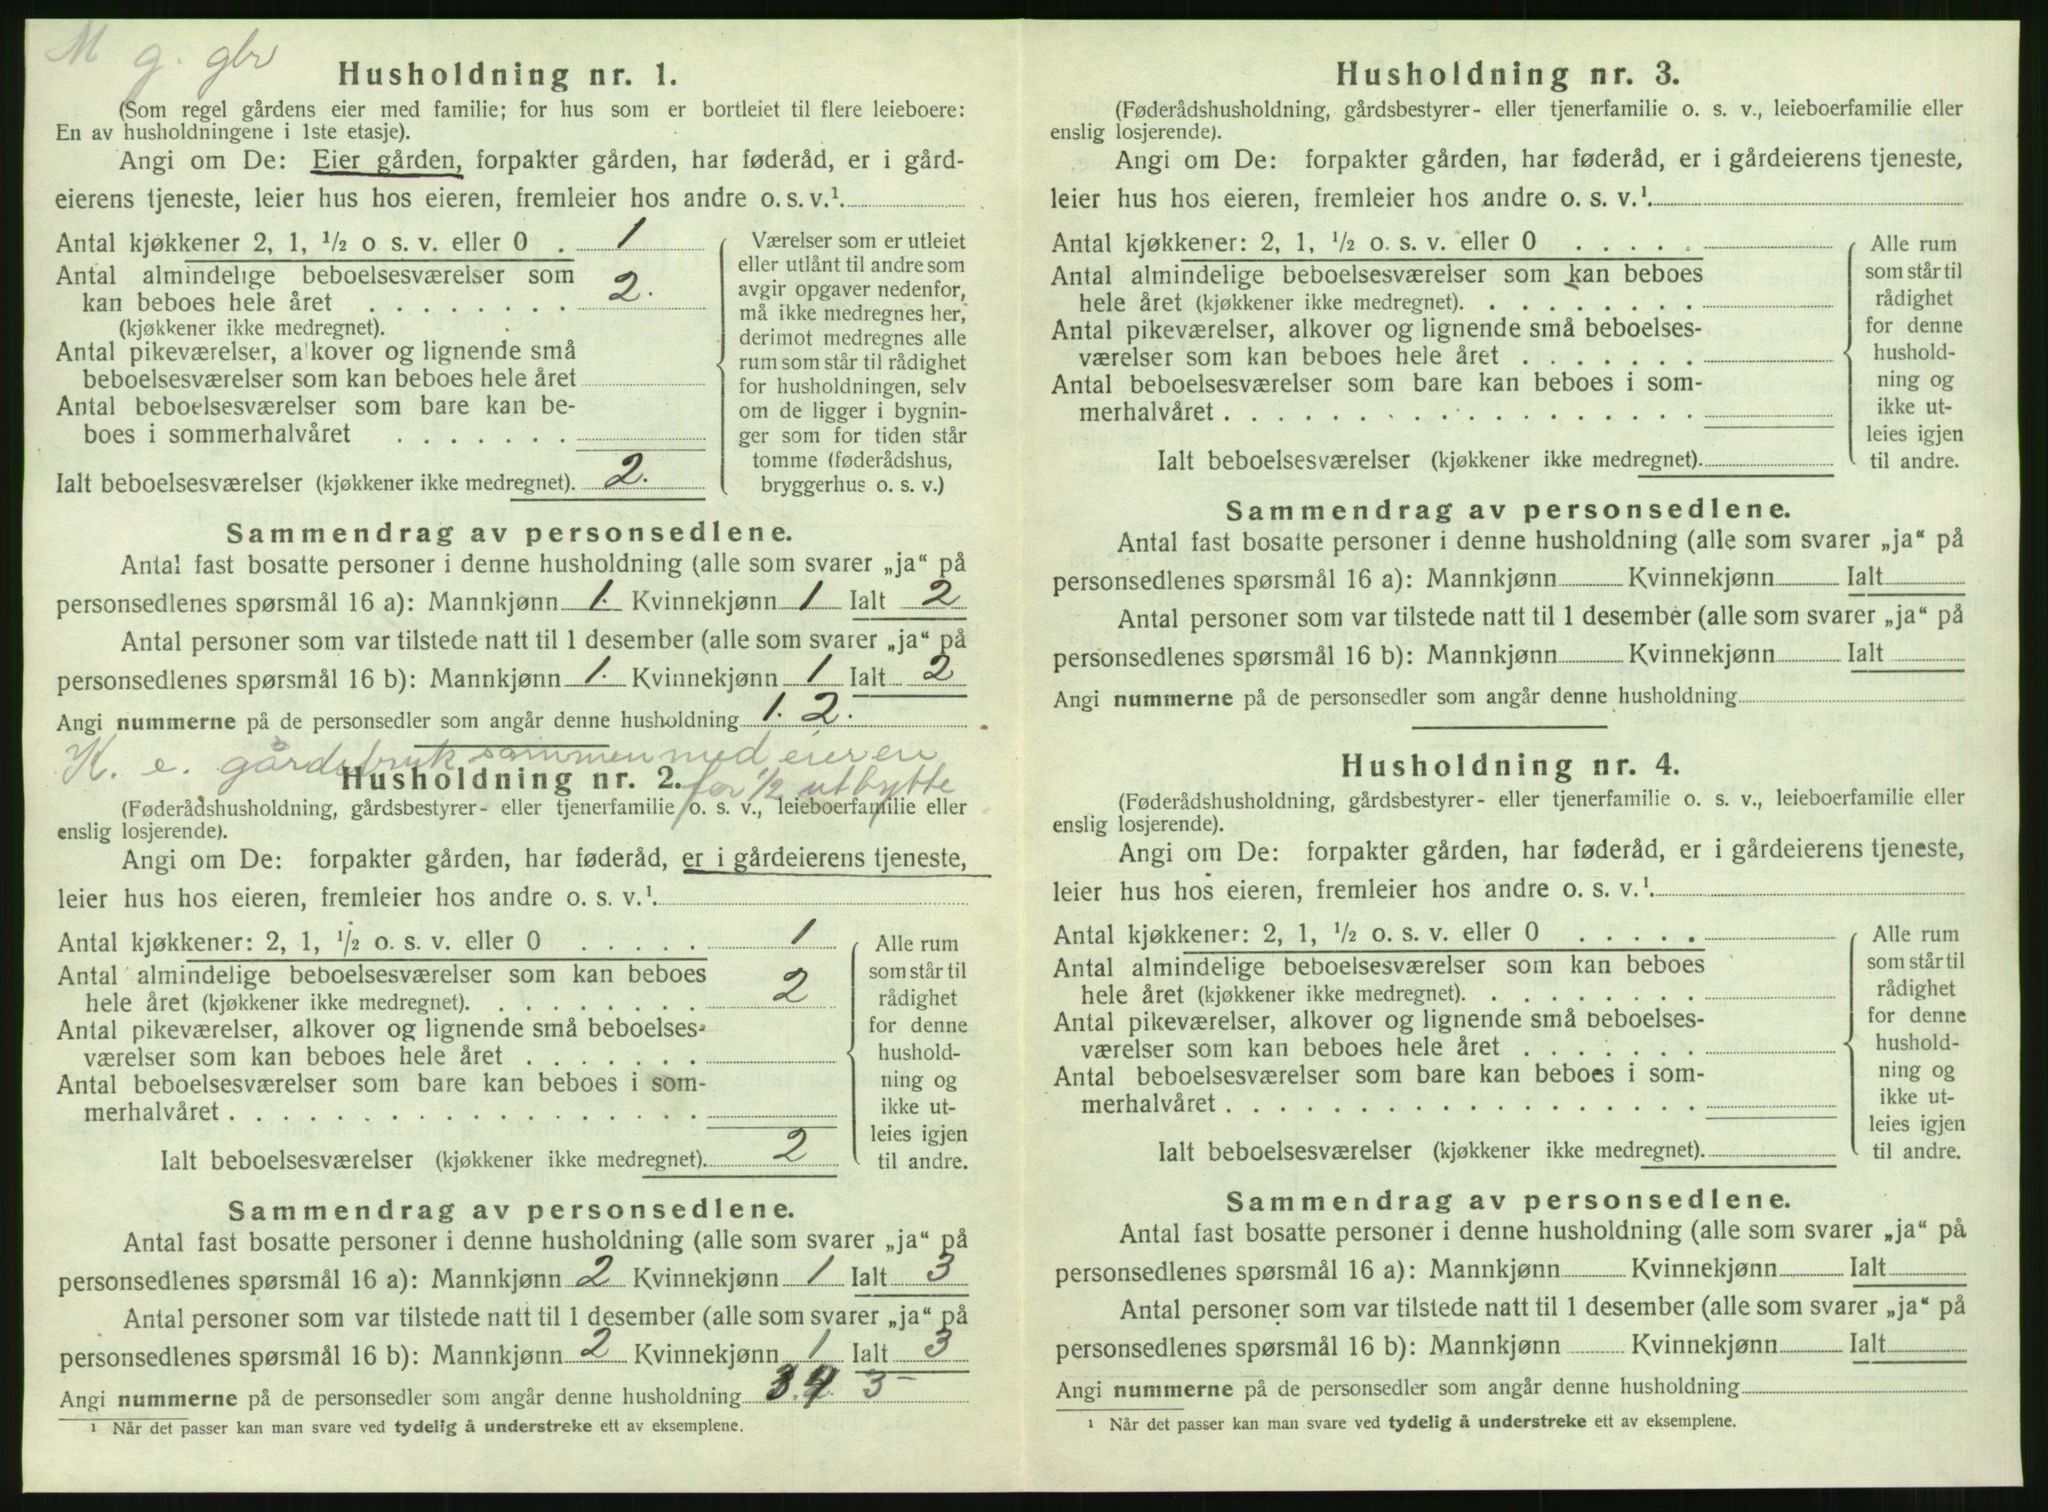 M g. gbr
Husholdning nr. 1.
(Som regel gårdens eier med familie; for hus som er bortleiet til flere leieboere:
En av husholdningene i 1ste etasje).
Angi om De: Eier gården, forpakter gården, har føderåd, er i gård-
eierens tjeneste, leier hus hos eieren, fremleier hos andre o. s. v.¹
Antal kjøkkener 2, 1, ½ o s. v. eller 0 . 1
Antal almindelige beboelsesværelser som
kan beboes hele året . . . . . . . . 2.
(kjøkkener ikke medregnet).
Antal pikeværelser, alkover og lignende små
beboelsesværelser som kan beboes hele året
Antal beboelsesværelser som bare kan be-
boes i sommerhalvåret . . . . . . .
Ialt beboelsesværelser (kjøkkener ikke medregnet). 2.
Værelser som er utleiet
eller utlånt til andre som
avgir opgaver nedenfor,
må ikke medregnes her,
derimot medregnes alle
rum som står til rådighet
for husholdningen, selv
om de ligger i bygnin-
ger som for tiden står
tomme (føderådshus,
bryggerhus o. s. v.)
Sammendrag av personsedlene.
Antal fast bosatte personer i denne husholdning (alle som svarer „ja“ på
personsedlenes spørsmål 16 a): Mannkjønn 1. Kvinnekjønn 1 Ialt 2
Antal personer som var tilstede natt til 1 desember (alle som svarer „ja“ på
personsedlenes spørsmål 16 b): Mannkjønn 1. Kvinnekjønn 1 Ialt 2
Angi nummerne på de personsedler som angår denne husholdning 1. 2.
H. e. gårdsbruk sammen med eieren
for ½ utbytte
Husholdning nr. 2.
(Føderådshusholdning, gårdsbestyrer- eller tjenerfamilie o. s. v., leieboerfamilie eller
enslig losjerende).
Angi om De: forpakter gården, har føderåd, er i gårdeierens tjeneste,
leier hus hos eieren, fremleier hos andre o. s. v.¹
Antal kjøkkener: 2, 1, ½ o. s. v. eller 0 . . . . . 1
Antal almindelige beboelsesværelser som kan beboes
hele året (kjøkkener ikke medregnet). . . . . . . . . 2
Antal pikeværelser, alkover og lignende små beboelses-
værelser som kan beboes hele året . . . . . . .
Antal beboelsesværelser som bare kan beboes i som-
merhalvåret . . . . . . . . . . . . . . . . . .
Ialt beboelsesværelser (kjøkkener ikke medregnet). 2
Alle rum
som står til
rådighet
for denne
hushold-
ning og
ikke ut-
leies igjen
til andre.
Sammendrag av personsedlene.
Antal fast bosatte personer i denne husholdning (alle som svarer „ja“ på
personsedlenes spørsmål 16 a): Mannkjønn 2 Kvinnekjønn 1 Ialt 3
Antal personer som var tilstede natt til 1 desember (alle som svarer „ja“ på
personsedlenes spørsmål 16 b): Mannkjønn 2 Kvinnekjønn 1 Ialt 3
Angi nummerne på de personsedler som angår denne husholdning 3. 4
¹ Når det passer kan man svare ved tydelig å understreke ett av eksemplene.
Husholdning nr. 3.
(Føderådshusholdning, gårdsbestyrer- eller tjenerfamilie o. s. v., leieboerfamilie eller
enslig losjerende).
Angi om De: forpakter gården, har føderåd, er i gårdeierens tjeneste,
leier hus hos eieren, fremleier hos andre o. s. v.¹
Antal kjøkkener: 2, 1, ½ o. s. v. eller 0 . . . . .
Antal almindelige beboelsesværelser som kan beboes
hele året (kjøkkener ikke medregnet). . . . . . . . .
Antal pikeværelser, alkover og lignende små beboelses-
værelser som kan beboes hele året . . . . . . .
Antal beboelsesværelser som bare kan beboes i som-
merhalvåret . . . . . . . . . . . . . . . . . .
Ialt beboelsesværelser (kjøkkener ikke medregnet).
Alle rum
som står til
rådighet
for denne
hushold-
ning og
ikke ut-
leies igjen
til andre.
Sammendrag av personsedlene.
Antal fast bosatte personer i denne husholdning (alle som svarer „ja“ på
personsedlenes spørsmål 16 a): Mannkjønn Kvinnekjønn Ialt
Antal personer som var tilstede natt til 1 desember (alle som svarer „ja“ på
personsedlenes spørsmål 16 b): Mannkjønn Kvinnekjønn Ialt
Angi nummerne på de personsedler som angår denne husholdning
Husholdning nr. 4.
(Føderådshusholdning, gårdsbestyrer- eller tjenerfamilie o. s. v., leieboerfamilie eller
enslig losjerende).
Angi om De: forpakter gården, har føderåd, er i gårdeierens tjeneste,
leier hus hos eieren, fremleier hos andre o. s. v.¹
Antal kjøkkener: 2, 1, ½ o. s. v. eller 0 . . . . .
Antal almindelige beboelsesværelser som kan beboes
hele året (kjøkkener ikke medregnet). . . . . . . . .
Antal pikeværelser, alkover og lignende små beboelses-
værelser som kan beboes hele året . . . . . . .
Antal beboelsesværelser som bare kan beboes i som-
merhalvåret . . . . . . . . . . . . . . . . . .
Ialt beboelsesværelser (kjøkkener ikke medregnet).
Alle rum
som står til
rådighet
for denne
hushold-
ning og
ikke ut-
leies igjen
til andre.
Sammendrag av personsedlene.
Antal fast bosatte personer i denne husholdning (alle som svarer „ja“ på
personsedlenes spørsmål 16 a): Mannkjønn Kvinnekjønn Ialt
Antal personer som var tilstede natt til 1 desember (alle som svarer „ja“ på
personsedlenes spørsmål 16 b): Mannkjønn Kvinnekjønn Ialt
Angi nummerne på de personsedler som angår denne husholdning
¹ Når det passer kan man svare ved tydelig å understreke ett av eksemplene.